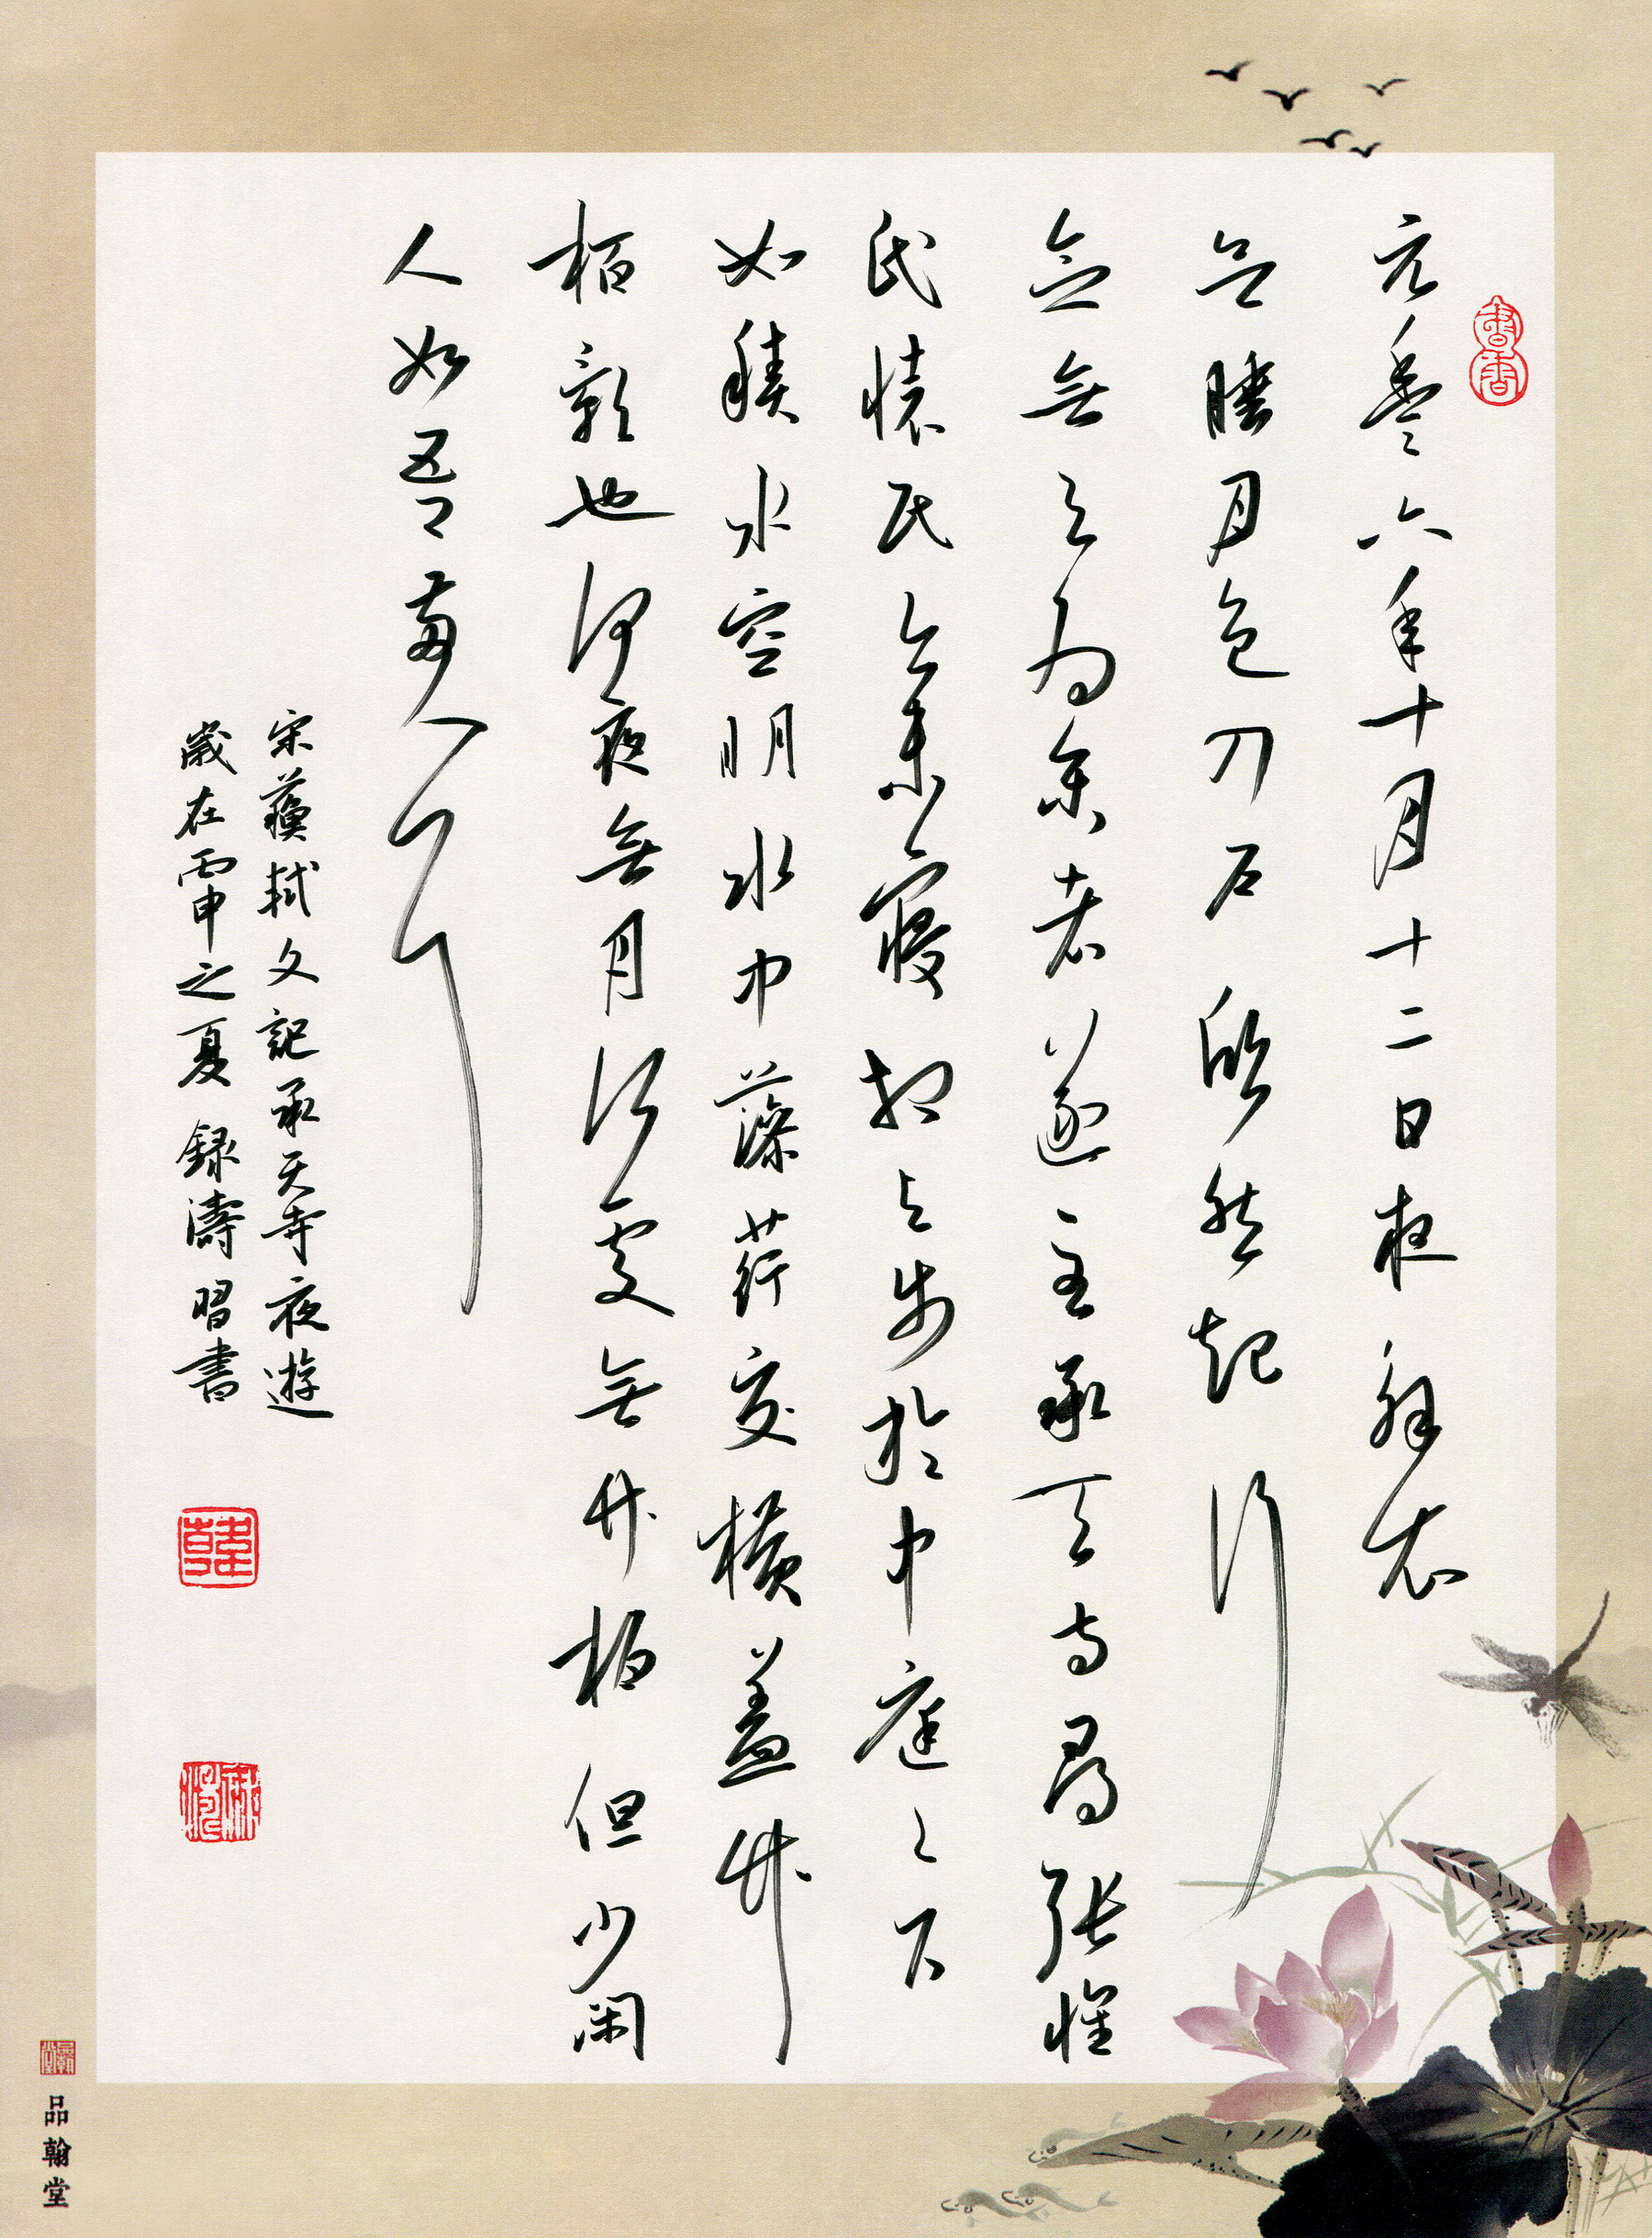 書香
元豐六年十月十二日夜解衣
欲睡月色入戶欣然起行
念無与為樂者遂至承天寺尋張懷
民懷民亦未寢相与步於中庭〻下
如積水空明水中藻荇交橫蓋竹
柏影也何夜無月何處無竹柏但少閑
人如吾兩人耳
宋蘇軾文記承天寺夜遊
歲在丙申之夏錄濤習書
韓
品翰堂